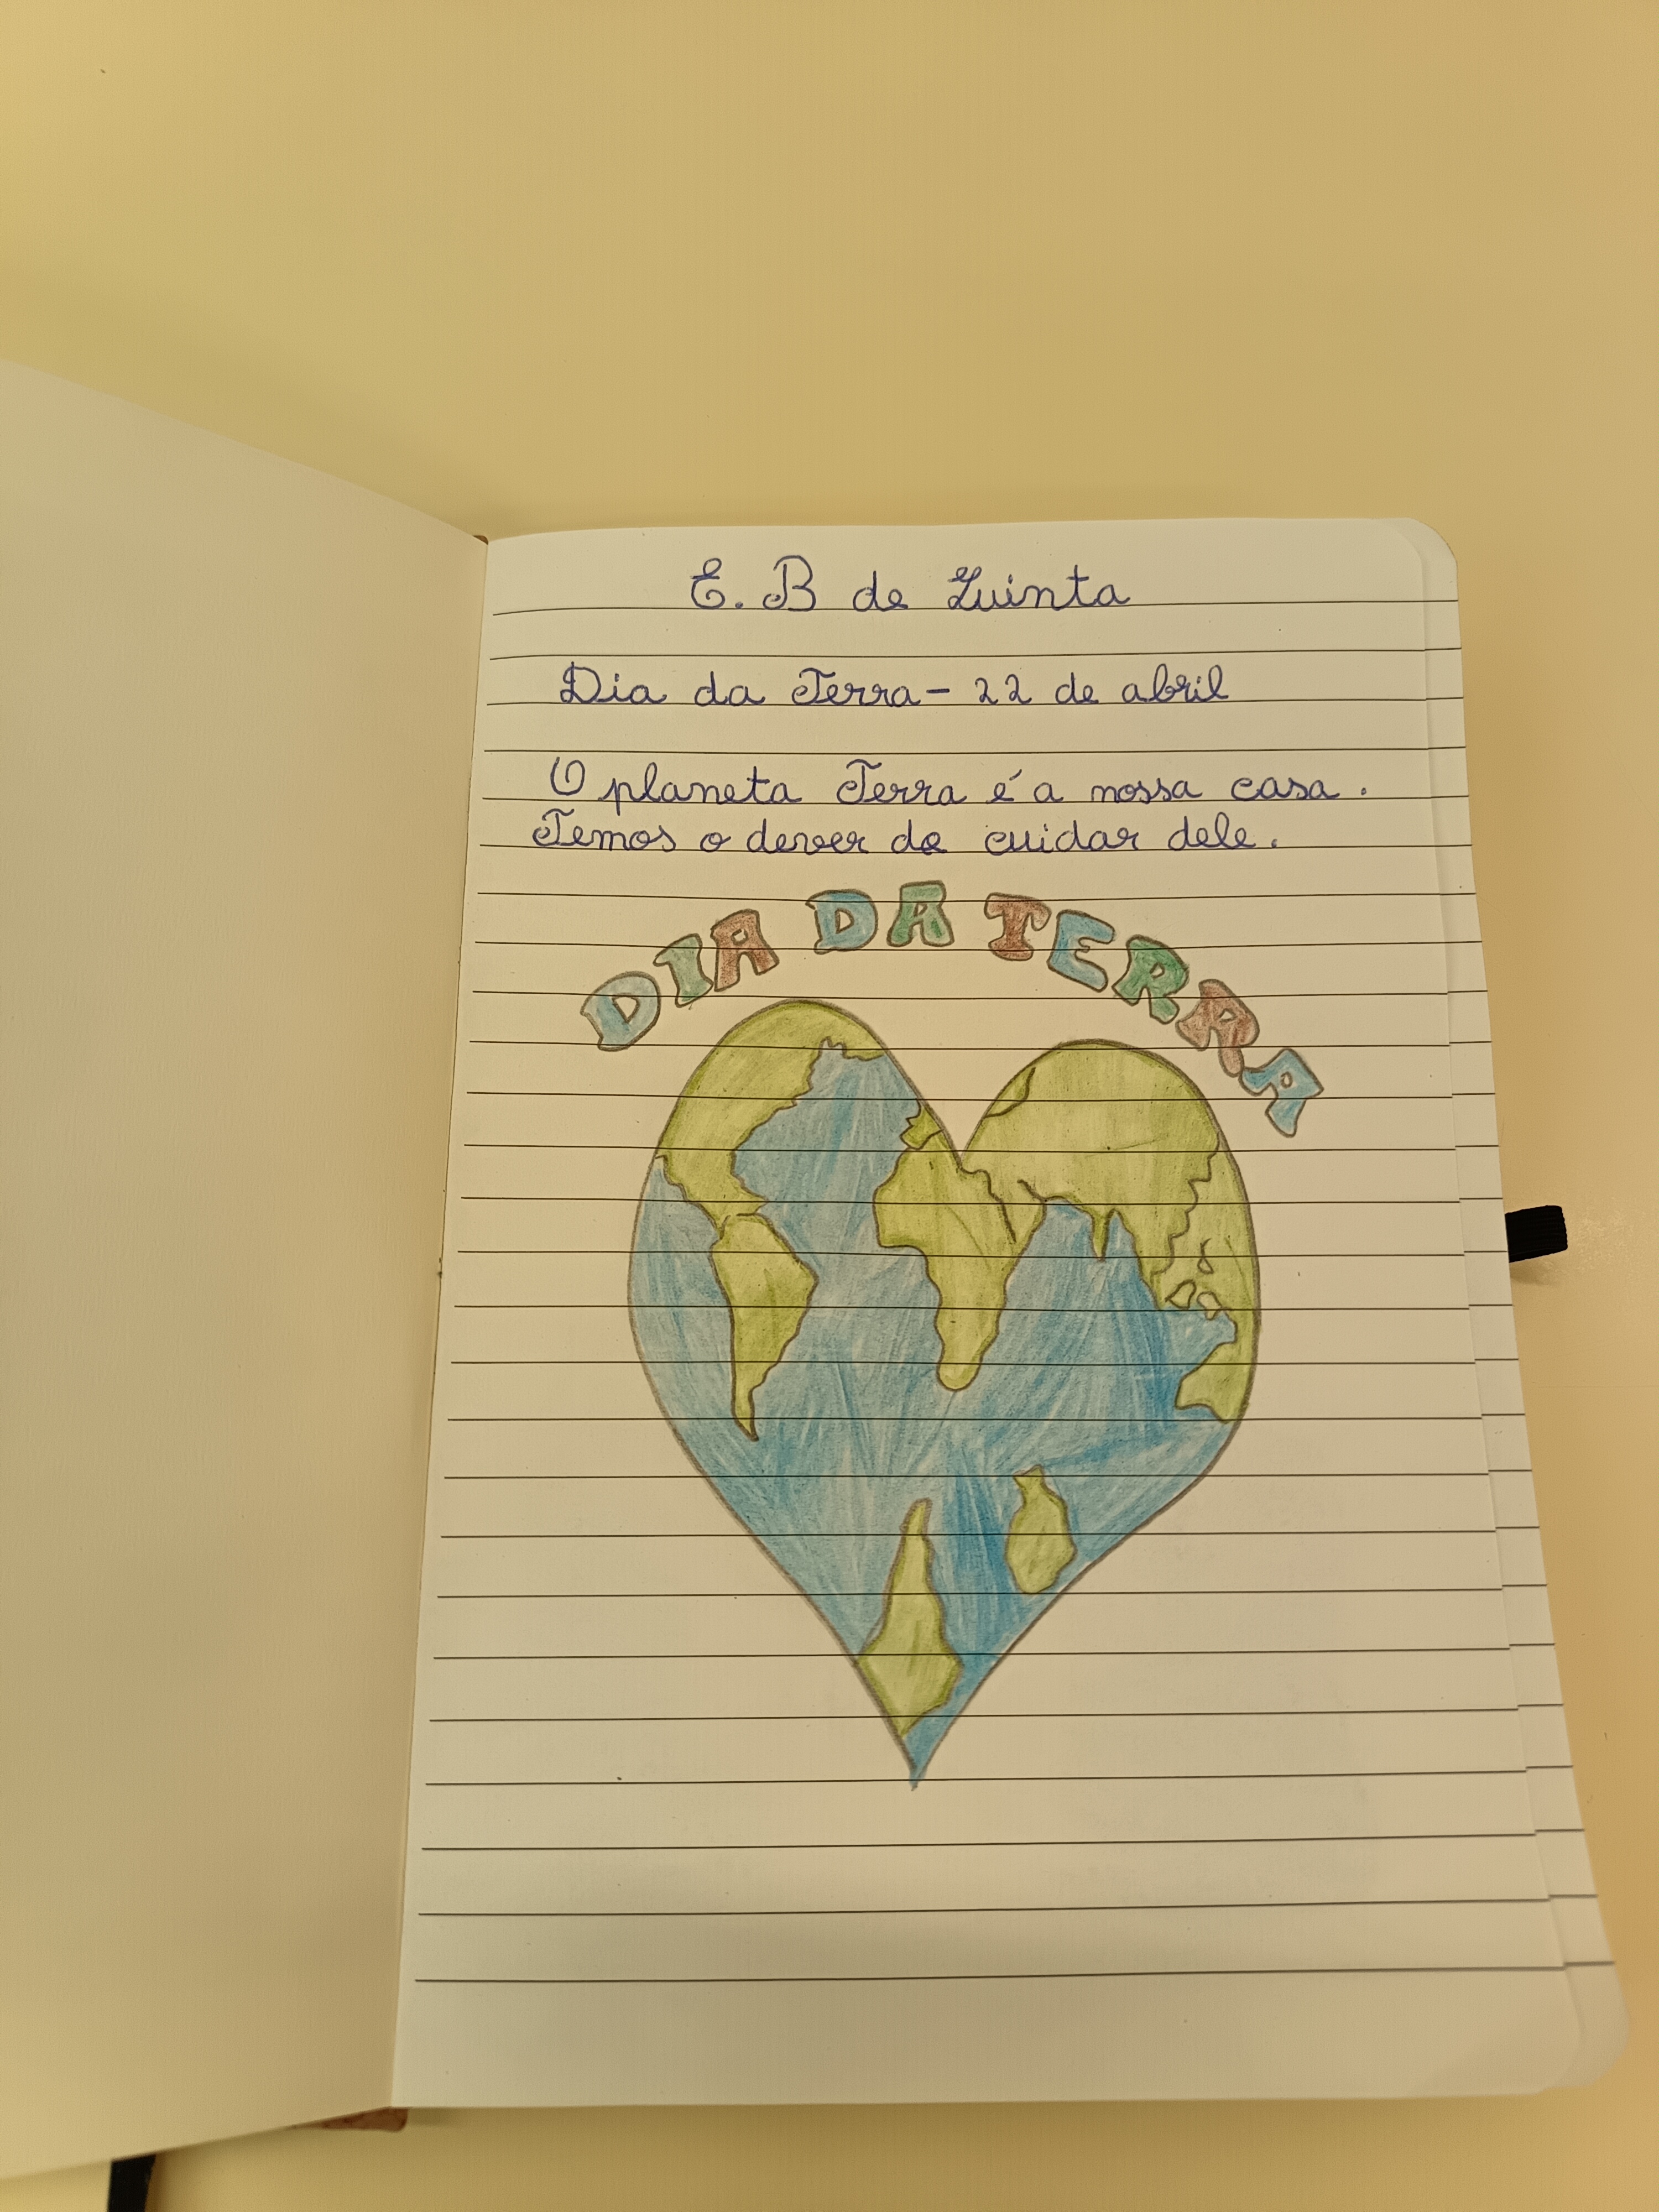 E. B de Quinta
Dia da Terra - 22 de abril
O planeta Terra é a nossa casa.
Temos o dever de cuidar dele.
DIA DA TERRA